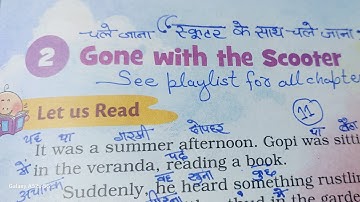 चले जाना (स्कूटर के साथ चले जाना
2 Gone with the Scooter
See playlist for all chapte
Let us Read
11
यह था गरमी दोपहर था बैठा
It was a summer afternoon. Gopi was sitti
में पढ़
in the veranda, reading a book.
अचानक वह सुना कुछ
Suddenly, he heard something rustlin
in the garde